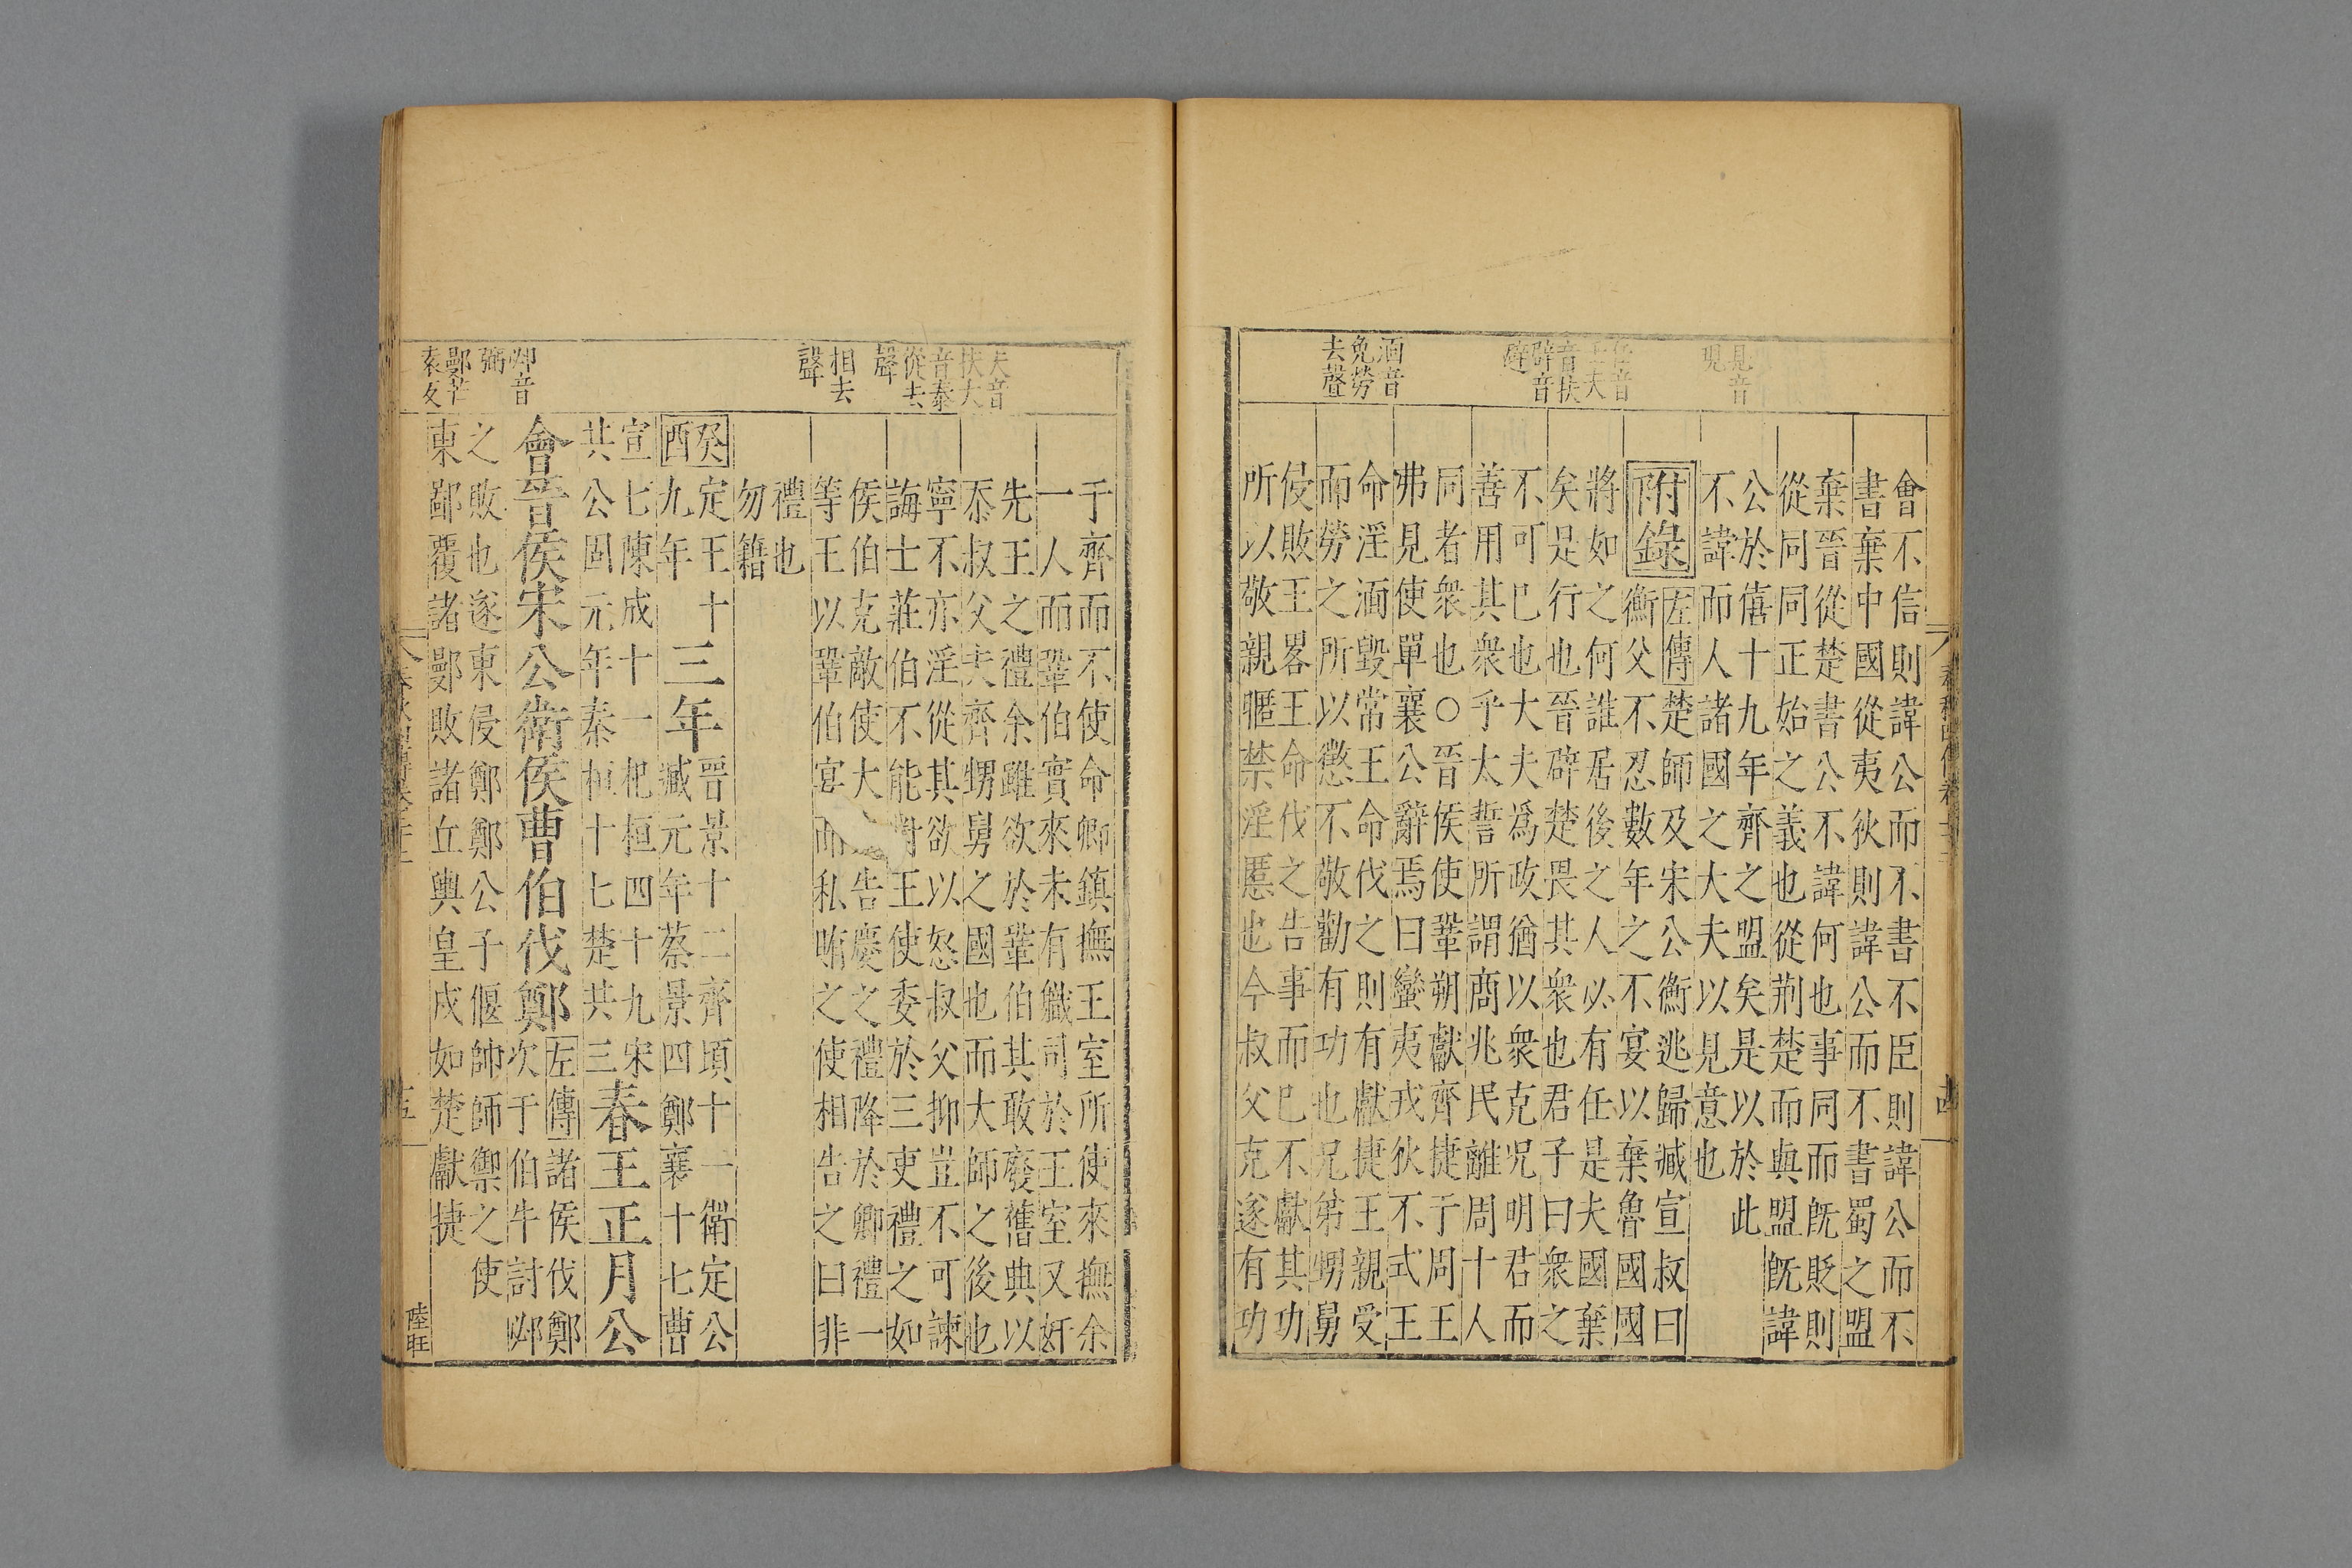 見音
現
任音
壬夫
音扶
辟音
避
湎音
免勞
去聲
會不信則諱公而不書不臣則諱公而不
書棄中國從夷狄則諱公而不書蜀之盟
棄晉從楚書公不諱何也事同而既貶則
從同同正始之義也從荆楚而與盟既諱
公於僖十九年齊之盟矣是以於此
不諱而人諸國之大夫以見意也
附錄
左傳楚師及宋公衡逃歸臧宣叔曰
衡父不忍數年之不宴以棄魯國國
將如之何誰居後之人必有任是夫國棄
矣是行也晉辟楚畏其衆也君子曰衆之
不可已也大夫爲政猶以衆克况明君而
善用其衆乎太誓所謂商兆民離周十人
同者衆也○晉侯使鞏朔獻齊捷于周王
弗見使單襄公辭焉曰蠻夷戎狄不式王
命淫湎毀常王命伐之則有獻捷王親受
而勞之所以懲不敬勸有功也兄弟甥舅
侵敗王畧王命伐之告事而已不獻其功
所以敬親暱禁淫慝也今叔父克遂有功
夫音
扶大
音泰
從去
聲
相去
聲
卹音
弼
鄤芒
袁反
于齊而不使命卿鎮撫王室所使來撫余
一人而鞏伯實來未有職司於王室又奸
先王之禮余雖欲於鞏伯其敢廢舊典以
忝叔父夫齊甥舅之國也而大師之後也
寧不亦淫從其欲以怒叔父抑豈不可諫
誨士莊伯不能對王使委於三吏禮之如
侯伯克敵使大告慶之禮降於卿禮一
等王以鞏伯宴而私賄之使相告之曰非
禮也
勿籍
癸酉
定王十
九年
三年
晉景十二齊頃十一衛定公
臧元年蔡景四鄭襄十七曹
宣七陳成十一杞桓四十九宋
共公固元年秦桓十七楚共三
春王正月公
會晉侯宋公衛侯曹伯伐鄭
左傳諸侯伐鄭
次于伯牛討邲
之敗也遂東侵鄭鄭公子偃帥師禦之使
東鄙覆諸鄤敗諸丘輿皇戌如楚獻捷
陸旺